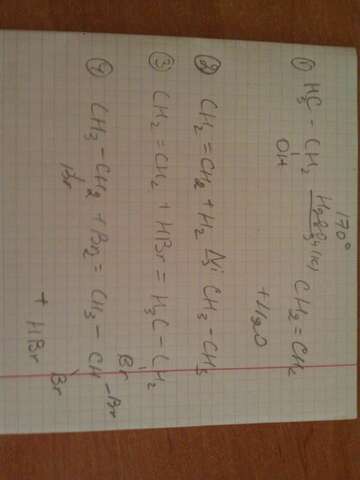 170°
① H₃C - CH₂ H₂SO₄(к) CH₂ = CH₂
OH + H₂O
② CH₂ = CH₂ + H₂ Ni CH₃ - CH₃
③ CH₂ = CH₂ + HBr = H₃C - CH₂
Br
④ CH₃ - CH₂ + Br₂ = CH₃ - CH - Br
Br Br
+ HBr